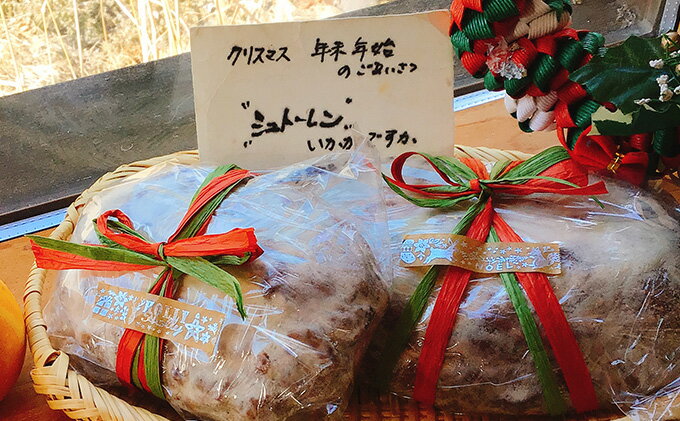 クリスマス 年末年始
のごあいさつ
"シュトーレン"
いかがですか。